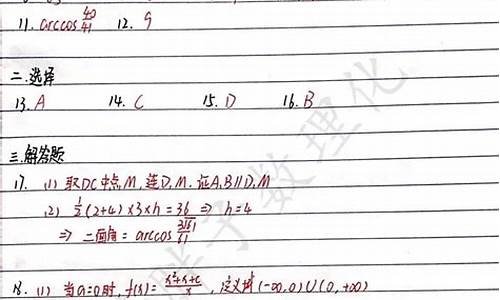 11. arccos 40/41 12. 9
二.选择
13. A 14. C 15. D 16. B
三.解答题
17. (1) 取DC中点M,连D₁M.证A₁B∥D₁M
(2) ½(2+4)×3×h=36 ⇒ h=4
⇒ 二面角=arccos
18. (1) 当a=0时, f(x)=(x²+x+c)/x, 定义域(-∞,0)∪(0,+∞)
胖子数理化